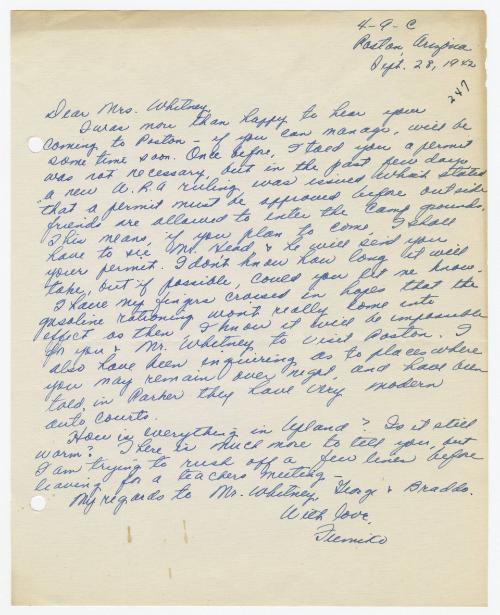 4-9-C
Poston, Arizona
Sept. 28, 1942
247
Dear Mrs. Whitney,
I was more than happy to hear your
coming to Poston - if you can manage, will be
some time soon. Once before, I told you a permit
was not necessary, but in the past few days
a new W.R.A ruling was issued which stated
that a permit must be approved before outside
friends are allowed to enter the camp grounds.
This means, if you plan to come, I shall
have to see Mr. Head & he will send you
your permit. I don't know how long it will
take, but if possible, could you let me know.
I have my fingers crossed in hopes that the
gasoline rationing won't really come into
effect as then I know it will be impossible
for you & Mr. Whitney to visit Poston. I
also have been inquiring as to places where
you may remain over night, and have been
told, in Parker they have very modern
auto courts.
How is everything in Upland? Is it still
warm? There is much more to tell you, but
I am trying to rush off a few lines before
leaving for a teachers meeting -
My regards to Mr. Whitney, George & Braddo.
With love,
Fumiko